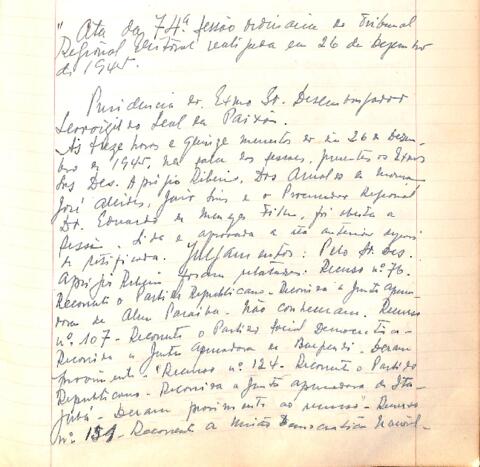 " Ata da 74ª sessão ordinaria do Tribunal
Regional Eleitoral realizada em 26 de Dezembro
de 1945.
Presidencia do Exmo Sr. Desembargador
Leal da Paixão.
As treze horas e quinze minutos do dia 26 de Dezem-
bro de 1945, na sala das sessões, presentes os Exmos
Des. Aprigio Ribeiro, Drs Arnaldo de
José Alcides, e o Procurador Regional
Dr. Eduardo de Menezes Filho, foi aberta a
sessão. Lida e aprovada a ata anterior depois
de retificada. Julgamentos: Pelo Sr. Des.
Aprigio Ribeiro foram relatados: Recurso nº 76.
Recorrente o Partido Republicano. Recorrida a Junta Apura-
dora de Alem Paraiba. Não conheceram. Recurso
nº 107 - Recorrente o Partido Social Democratico -
Recorrida a Junta Apuradora de Baependi. Deram
provimento. Recurso nº 124. Recorrente o Partido
Republicano. Recorrida a Junta apuradora de Ita-
jubá. Deram provimento ao recurso. Recurso
nº - Recorrente a União Democratica